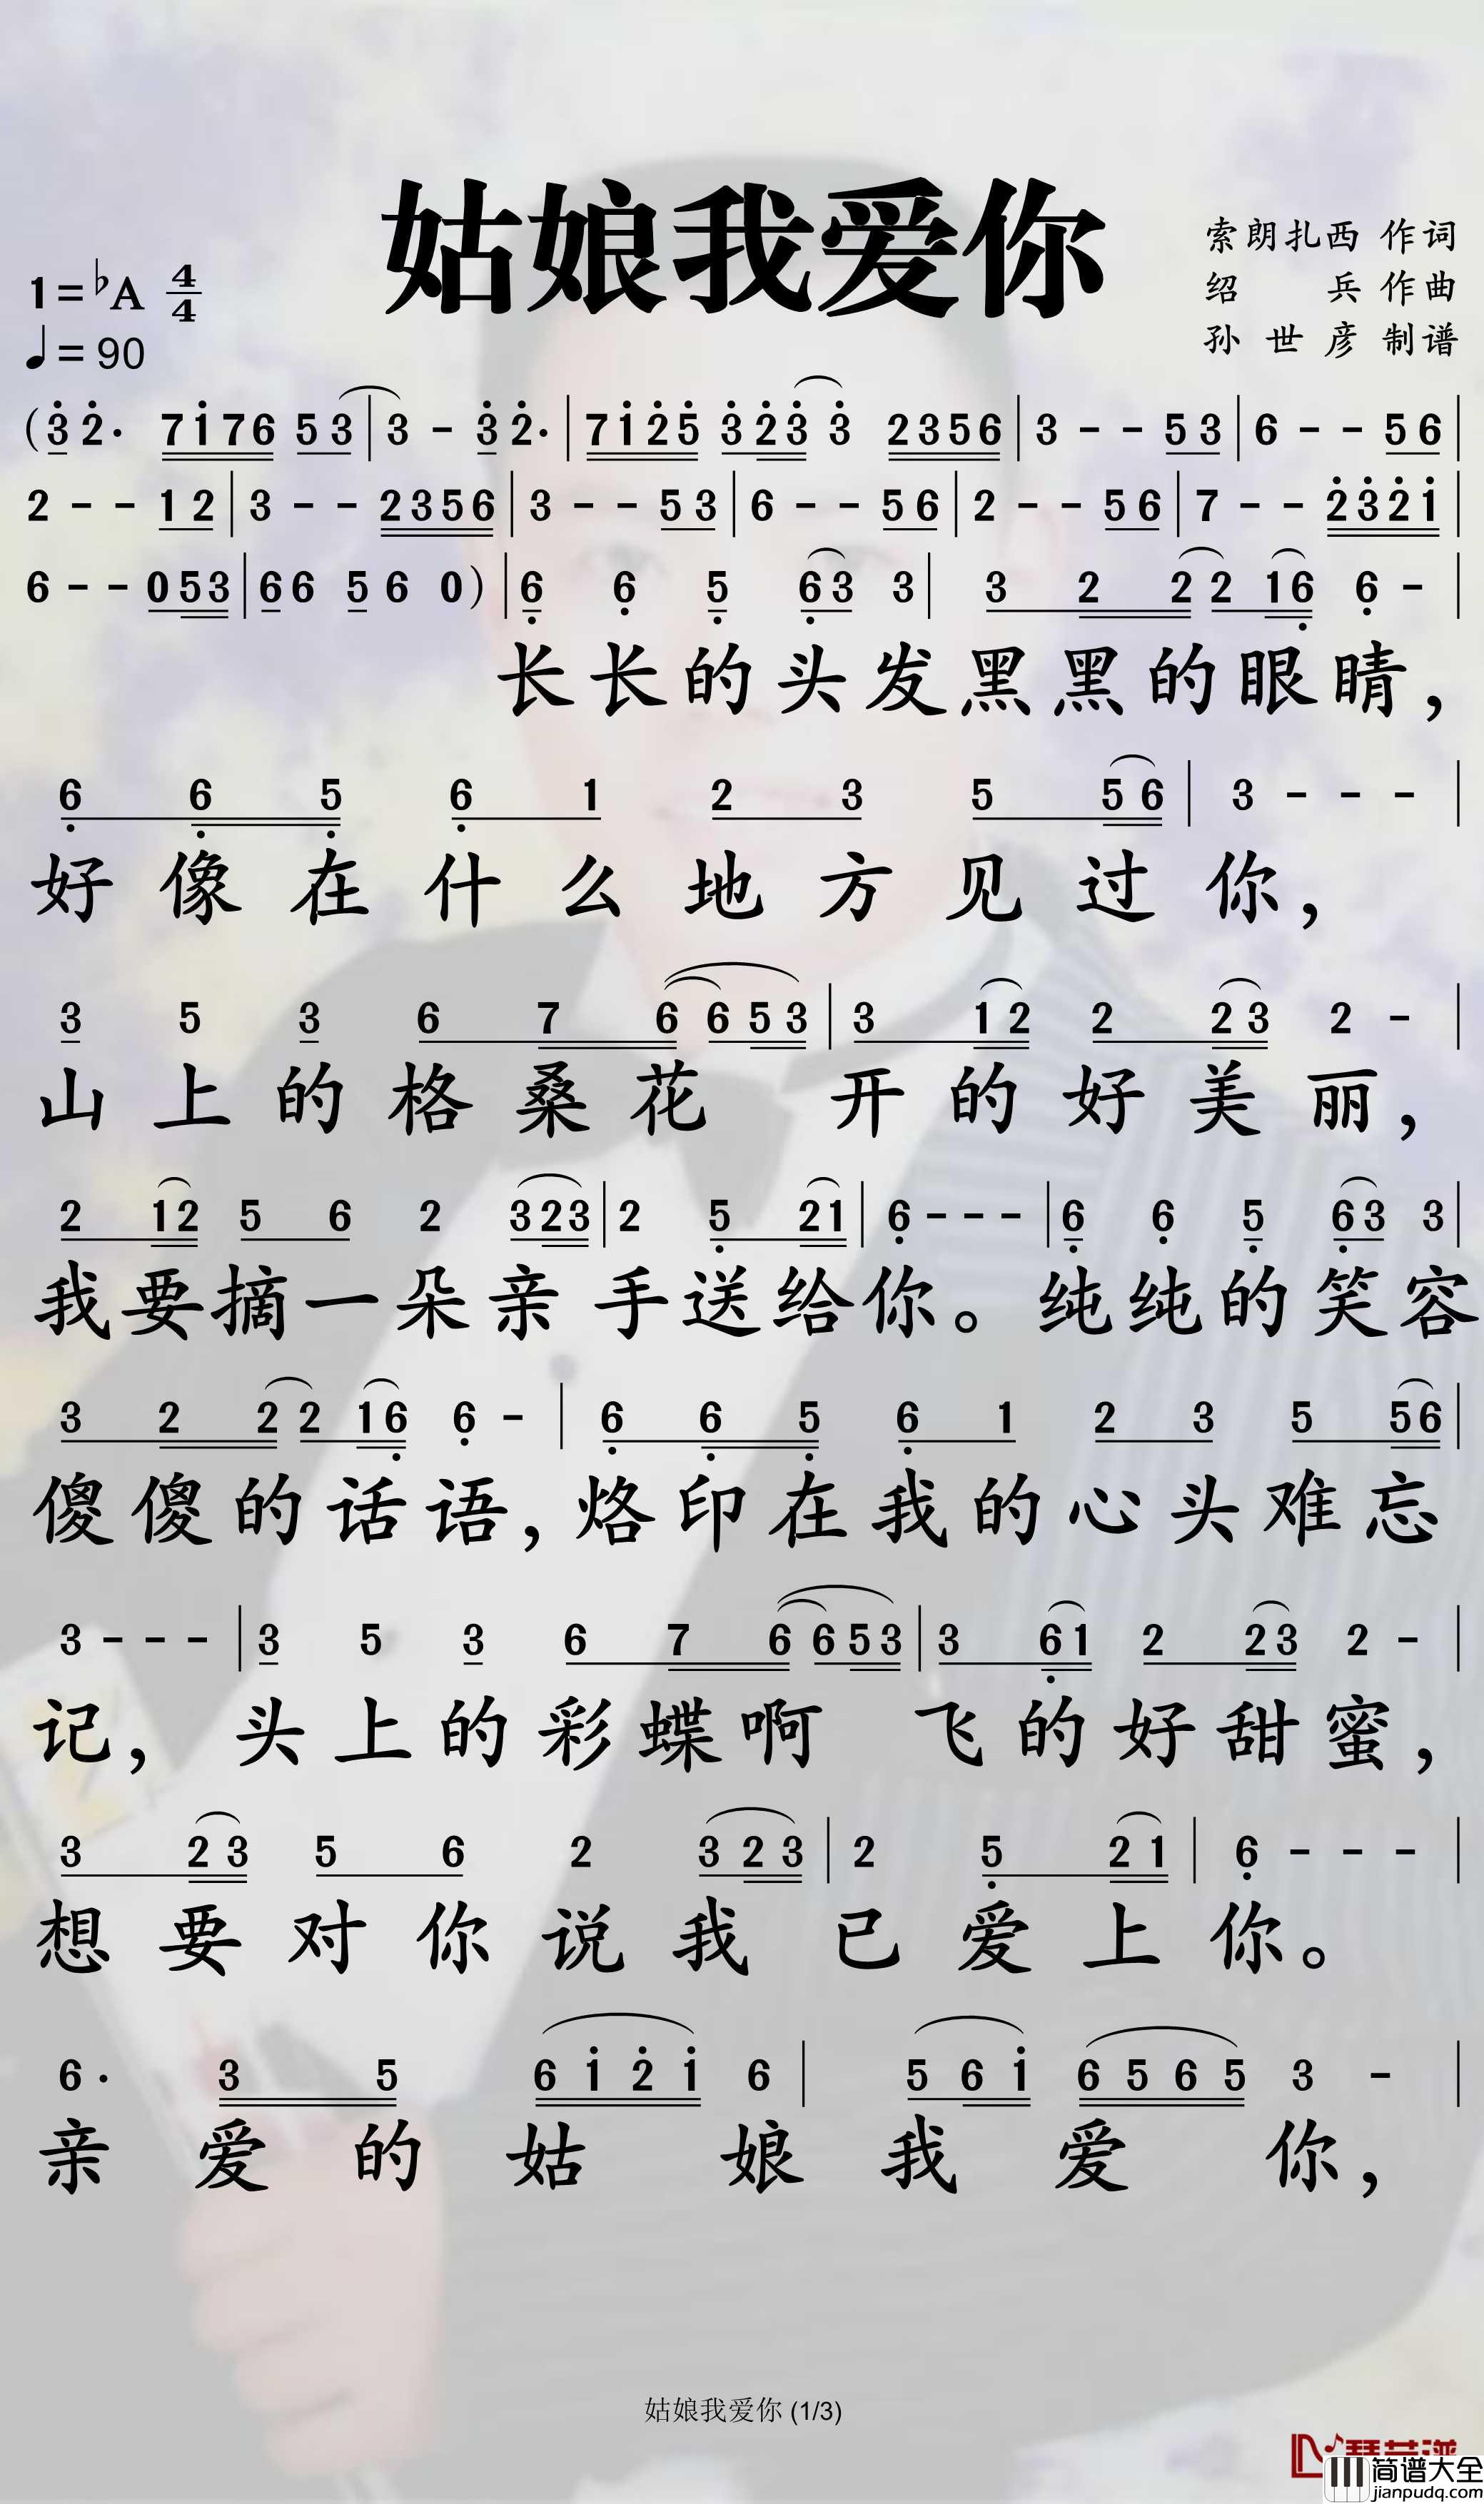 姑娘我爱你
索朗扎西 作词
绍 兵 作曲
孙世彦 制谱
1=♭A 4/4
♩=90
(3̇ 2̇· 7 1̇ 7 6 5 3 | 3 - 3̇ 2̇· | 7 1̇ 2̇ 5̇ 3̇ 2̇ 3̇ 3̇ 2 3 5 6 | 3 - - 5 3 | 6 - - 5 6 |
2 - - 1 2 | 3 - - 2 3 5 6 | 3 - - 5 3 | 6 - - 5 6 | 2 - - 5 6 | 7 - - 2̇ 3̇ 2̇ 1̇ |
6 - - 0 5 3 | 6 6 5 6 0) | 6̣ 6̣ 5̣ 6̣ 3 3 | 3 2 2 2 1 6̣ 6̣ - |
长长的头发黑黑的眼睛，
6̣ 6̣ 5̣ 6̣ 1 2 3 5 5 6 | 3 - - - |
好像在什么地方见过你，
3 5 3 6 7 6 6 5 3 | 3 1 2 2 2 3 2 - |
山上的格桑花 开的好美丽，
2 1 2 5 6 2 3 2 3 | 2 5̣ 2 1 | 6̣ - - - | 6̣ 6̣ 5̣ 6̣ 3 3 |
我要摘一朵亲手送给你。纯纯的笑容
3 2 2 2 1 6̣ 6̣ - | 6̣ 6̣ 5̣ 6̣ 1 2 3 5 5 6 |
傻傻的话语，烙印在我的心头难忘
3 - - - | 3 5 3 6 7 6 6 5 3 | 3 6̣ 1 2 2 3 2 - |
记，头上的彩蝶啊 飞的好甜蜜，
3 2 3 5 6 2 3 2 3 | 2 5̣ 2 1 | 6̣ - - - |
想要对你说我已爱上你。
6· 3 5 6 1̇ 2̇ 1̇ 6 | 5 6 1̇ 6 5 6 5 3 - |
亲爱的姑娘我爱你，
姑娘我爱你 (1/3)
简谱大全
jianpudq.com